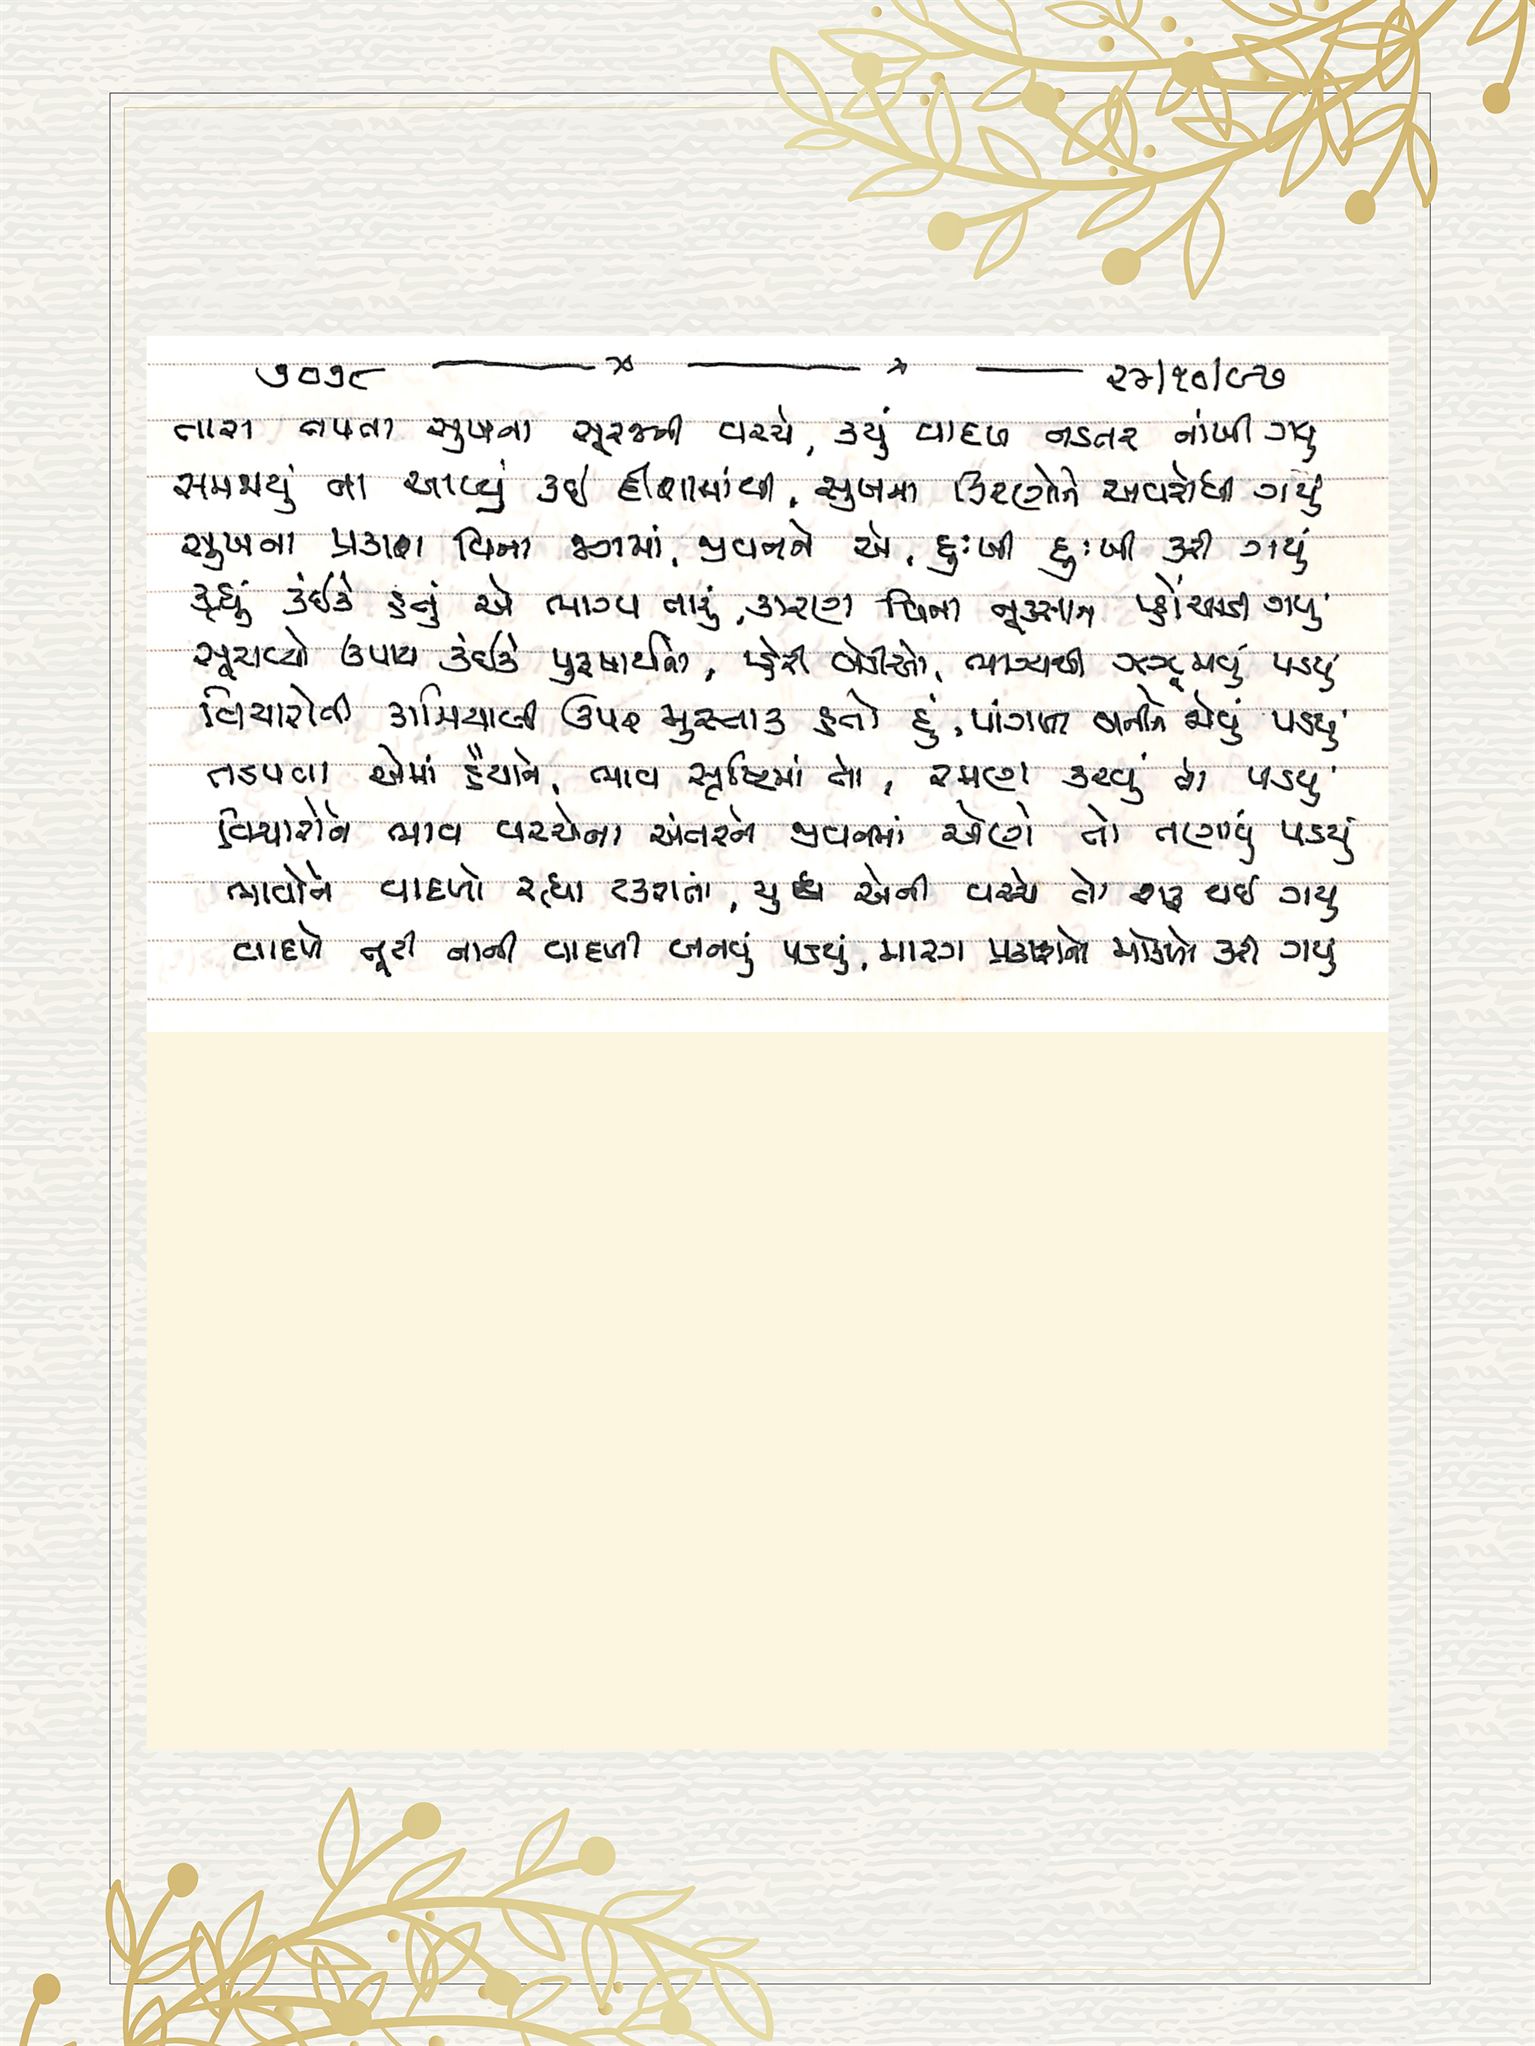 ૭૦૭૮ ૨૪/૧૦/૯૭
તારા તપતા સુખના સૂરજની વચ્ચે, કયું વાદળ નડતર નાંખી ગયું
સમજાયું ના આવ્યું કઈ દીશામાંથી, સુખના કિરણોને અવરોધી ગયું
સુખના પ્રકાશ વિના જગમાં, જીવનને એ, દુઃખી દુઃખી કરી ગયું
કંઈકે હતું એ ભાગ્ય તારું, કારણ વિના નૂકસાન પ્હોંચાડી ગયું
સૂચવ્યો ઉપાય કંઈકે પુરુષાર્થનો, પ્હેરી બેડીઓ, ભાગ્યથી ઝઝૂમવું પડયું
વિચારોની કામિયાબી ઉપર મુસ્તાક હતો હું, પાંગળા બનીને જોવું પડયું
તડપવા એમાં હૈયાને, ભાવ સૃષ્ટિમાં તો, રમણ કરવું તો પડયું
વિચારોને ભાવ વચ્ચેના અંતરને જીવનમાં એણે તો તણાવું પડયું
ભાવોને વાદળો રહ્યા ટકરાતાં, યુદ્ધ એની વચ્ચે તો શરૂ થઈ ગયુ
વાદળે તૂટી નાની વાદળી બનવું પડયું, મારગ પ્રકાશનો મોકળો કરી ગયુ